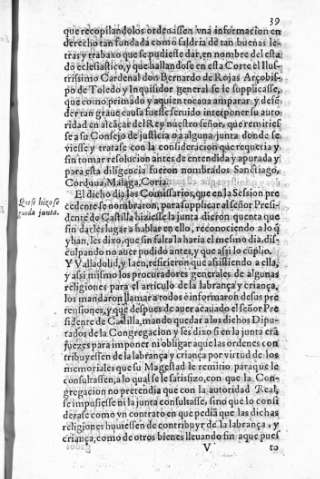 39
que recopilandolos ordenassen vna informacion en
derecho tan fundada como saldria de tan buenas le-
tras y trabaxo que se pudieste dar, en nombre del esta
do eclesiastico, y que hallandose en esta Corte el Ilus-
trissimo Cardenal don Bernardo de Rojas Arçobis-
po de Toledo y Inquisidor general se le supplicasse,
que como primado y a quien tocaua amparar y defé-
der tan graue causa fuesse seruido interponer su auto
ridad en alcáçar del Rey nuestro señor, que remitiesse
se a su Consejo de justicia o a alguna junta donde se
viesse y tratase con la consideracion que requeria y
sin tomar resolucion antes de entendida y apurada y
para esta diligencia fueron nombrados Sanctiago,
Cordoua, Malaga, Coria.
El dicho dia los Comissarios, que en la Session pre
cedente se nombraron, para supplicar al señor Presi-
déte de Castilla hiziesse la junta dieron quenta que
sin darles lugar a hablar en ello, reconociendo a lo q
yban, les dixo, que sin falta la haria el mesmo dia, dis-
culpando no auer podido antes, y que assi lo cúplio.
Y Valladolid, y Iaen, refirieron que assistiendo a ella,
y assi mismo los procuradores generales de algunas
religiones para el articulo de la labrança y criança,
los mandaron llamar a todos e informaron de sus pre
tensiones, y que despues de auer acauado el señor Pre
sidente de Castilla, mando quedar a los dichos Dipu-
tados de la Congregacion y les dixo si en la junta erá
juezes para imponer ni obligar a que las ordenes con
tribuyessen de la labrança y criança por virtud de los
memoriales que su Magestad le remitio para que le
consultassen, a lo qual se le satisfizo, con que la Con-
gregacion no pretendia que con la autoridad Real,
se impusiesse ni la junta consultasse, sino que lo consi
derase como vn contrato en que pediã que las dichas
religiones huuiessen de contribuyr de la labrança, y
criança, como de otros bienes lleuando sin aquel pues
V to
Que se hizo se
gũda junta.